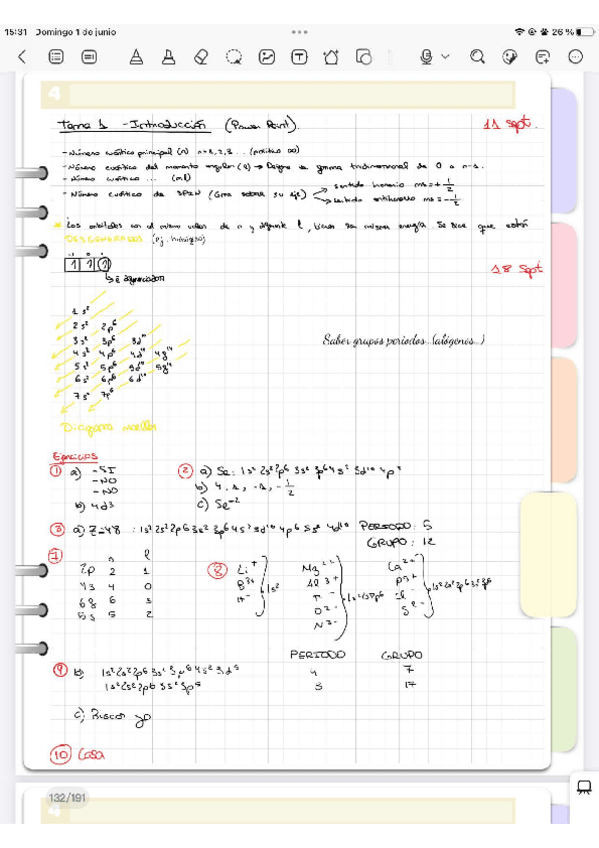 15:31 Domingo 1 de junio
26 %
4
Tema 1 - Introducción (Power Point).
11 sept.
- Número cuántico principal (n) n=1,2,3... (positivo ∞)
- Número cuántico del momento angular (l) → Designa la forma tridimensional de 0 a n-1.
- Número cuántico ... (ml)
- Número cuántico de SPIN (Gira sobre su eje)
→ sentido horario ms=+1/2
→ sentido antihorario ms=-1/2
* Los orbitales con el mismo valor de n y diferente l, tienen la misma energía. Se dice que están
DESGENERADOS (Pj. hidrógeno)
18 Sept
-1 0 1
1 1 1
→ é diferenciador
1s²
2s² 2p⁶
3s² 3p⁶ 3d¹⁰
4s² 4p⁶ 4d¹⁰ 4f¹⁴
5s² 5p⁶ 5d¹⁰ 5f¹⁴
6s² 6p⁶ 6d¹⁰
7s² 7p⁶
Saber grupos periodos...(alógenos...)
Diagrama moeller
Ejercicios
1 a) - SI
- NO
- NO
b) 4d3
2 a) Se: 1s² 2s² 2p⁶ 3s² 3p⁶ 4s² 3d¹⁰ 4p⁴
b) 4, 1, -1, -1/2
c) Se⁻²
3 a) Z=48 : 1s² 2s² 2p⁶ 3s² 3p⁶ 4s² 3d¹⁰ 4p⁶ 5s² 4d¹⁰ PERIODO: 5
GRUPO: 12
7 n l
2p 2 1
4s 4 0
6f 6 3
5d 5 2
8 Li⁺
B³⁺
H⁻
1s²
Mg²⁺
Al³⁺
F⁻
O²⁻
N³⁻
1s²2s²2p⁶
Ca²⁺
P³⁻
Cl⁻
S²⁻
1s²2s²2p⁶3s²3p⁶
PERIODO GRUPO
9 b) 1s²2s²2p⁶3s²3p⁶4s²3d⁵ 4 7
1s²2s²2p⁶3s²3p⁵ 3 17
c) Buscar yo
10 Casa
132/191
4